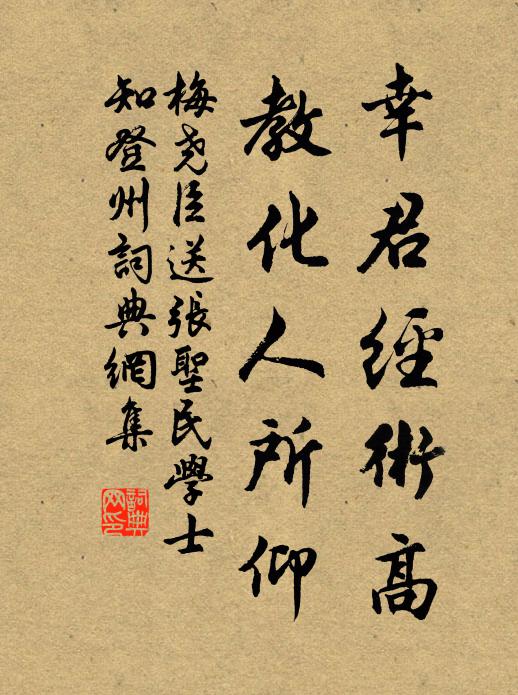 幸君經術高
教化人所仰
梅尭臣送張聖民學士
知登州詞典網集
詞典网印